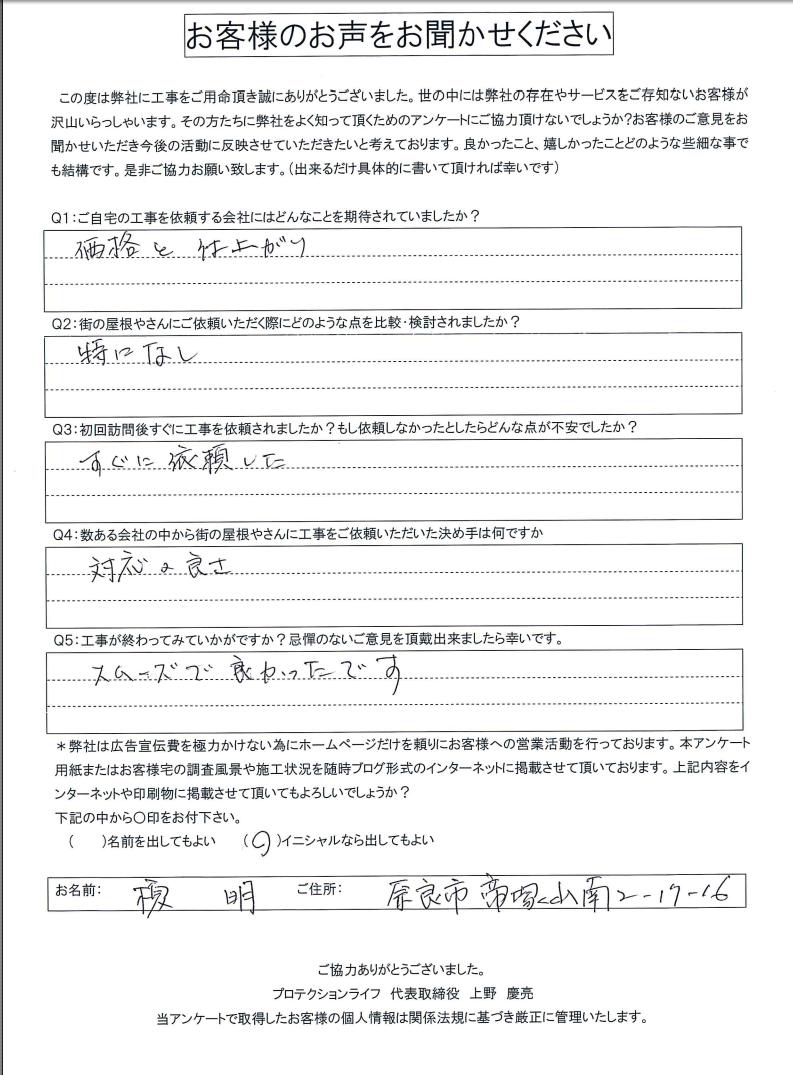 お客様のお声をお聞かせください
この度は弊社に工事をご用命頂き誠にありがとうございました。世の中には弊社の存在やサービスをご存知ないお客様が
沢山いらっしゃいます。その方たちに弊社をよく知って頂くためのアンケートにご協力頂けないでしょうか?お客様のご意見をお
聞かせいただき今後の活動に反映させていただきたいと考えております。良かったこと、嬉しかったことどのような些細な事で
も結構です。是非ご協力お願い致します。(出来るだけ具体的に書いて頂ければ幸いです)
Q1:ご自宅の工事を依頼する会社にはどんなことを期待されていましたか?
価格と仕上がり
Q2:街の屋根やさんにご依頼いただく際にどのような点を比較・検討されましたか?
特になし
Q3:初回訪問後すぐに工事を依頼されましたか?もし依頼しなかったとしたらどんな点が不安でしたか?
すぐに依頼した
Q4:数ある会社の中から街の屋根やさんに工事をご依頼いただいた決め手は何ですか
対応の良さ
Q5:工事が終わってみていかがですか?忌憚のないご意見を頂戴出来ましたら幸いです。
スムーズで良かったです
*弊社は広告宣伝費を極力かけない為にホームページだけを頼りにお客様への営業活動を行っております。本アンケート
用紙またはお客様宅の調査風景や施工状況を随時ブログ形式のインターネットに掲載させて頂いております。上記内容をイ
ンターネットや印刷物に掲載させて頂いてもよろしいでしょうか?
下記の中から〇印をお付下さい。
( )名前を出してもよい (〇)イニシャルなら出してもよい
お名前: 明 ご住所: 奈良市帝塚山南2-17-16
ご協力ありがとうございました。
プロテクションライフ 代表取締役 上野 慶亮
当アンケートで取得したお客様の個人情報は関係法規に基づき厳正に管理いたします。